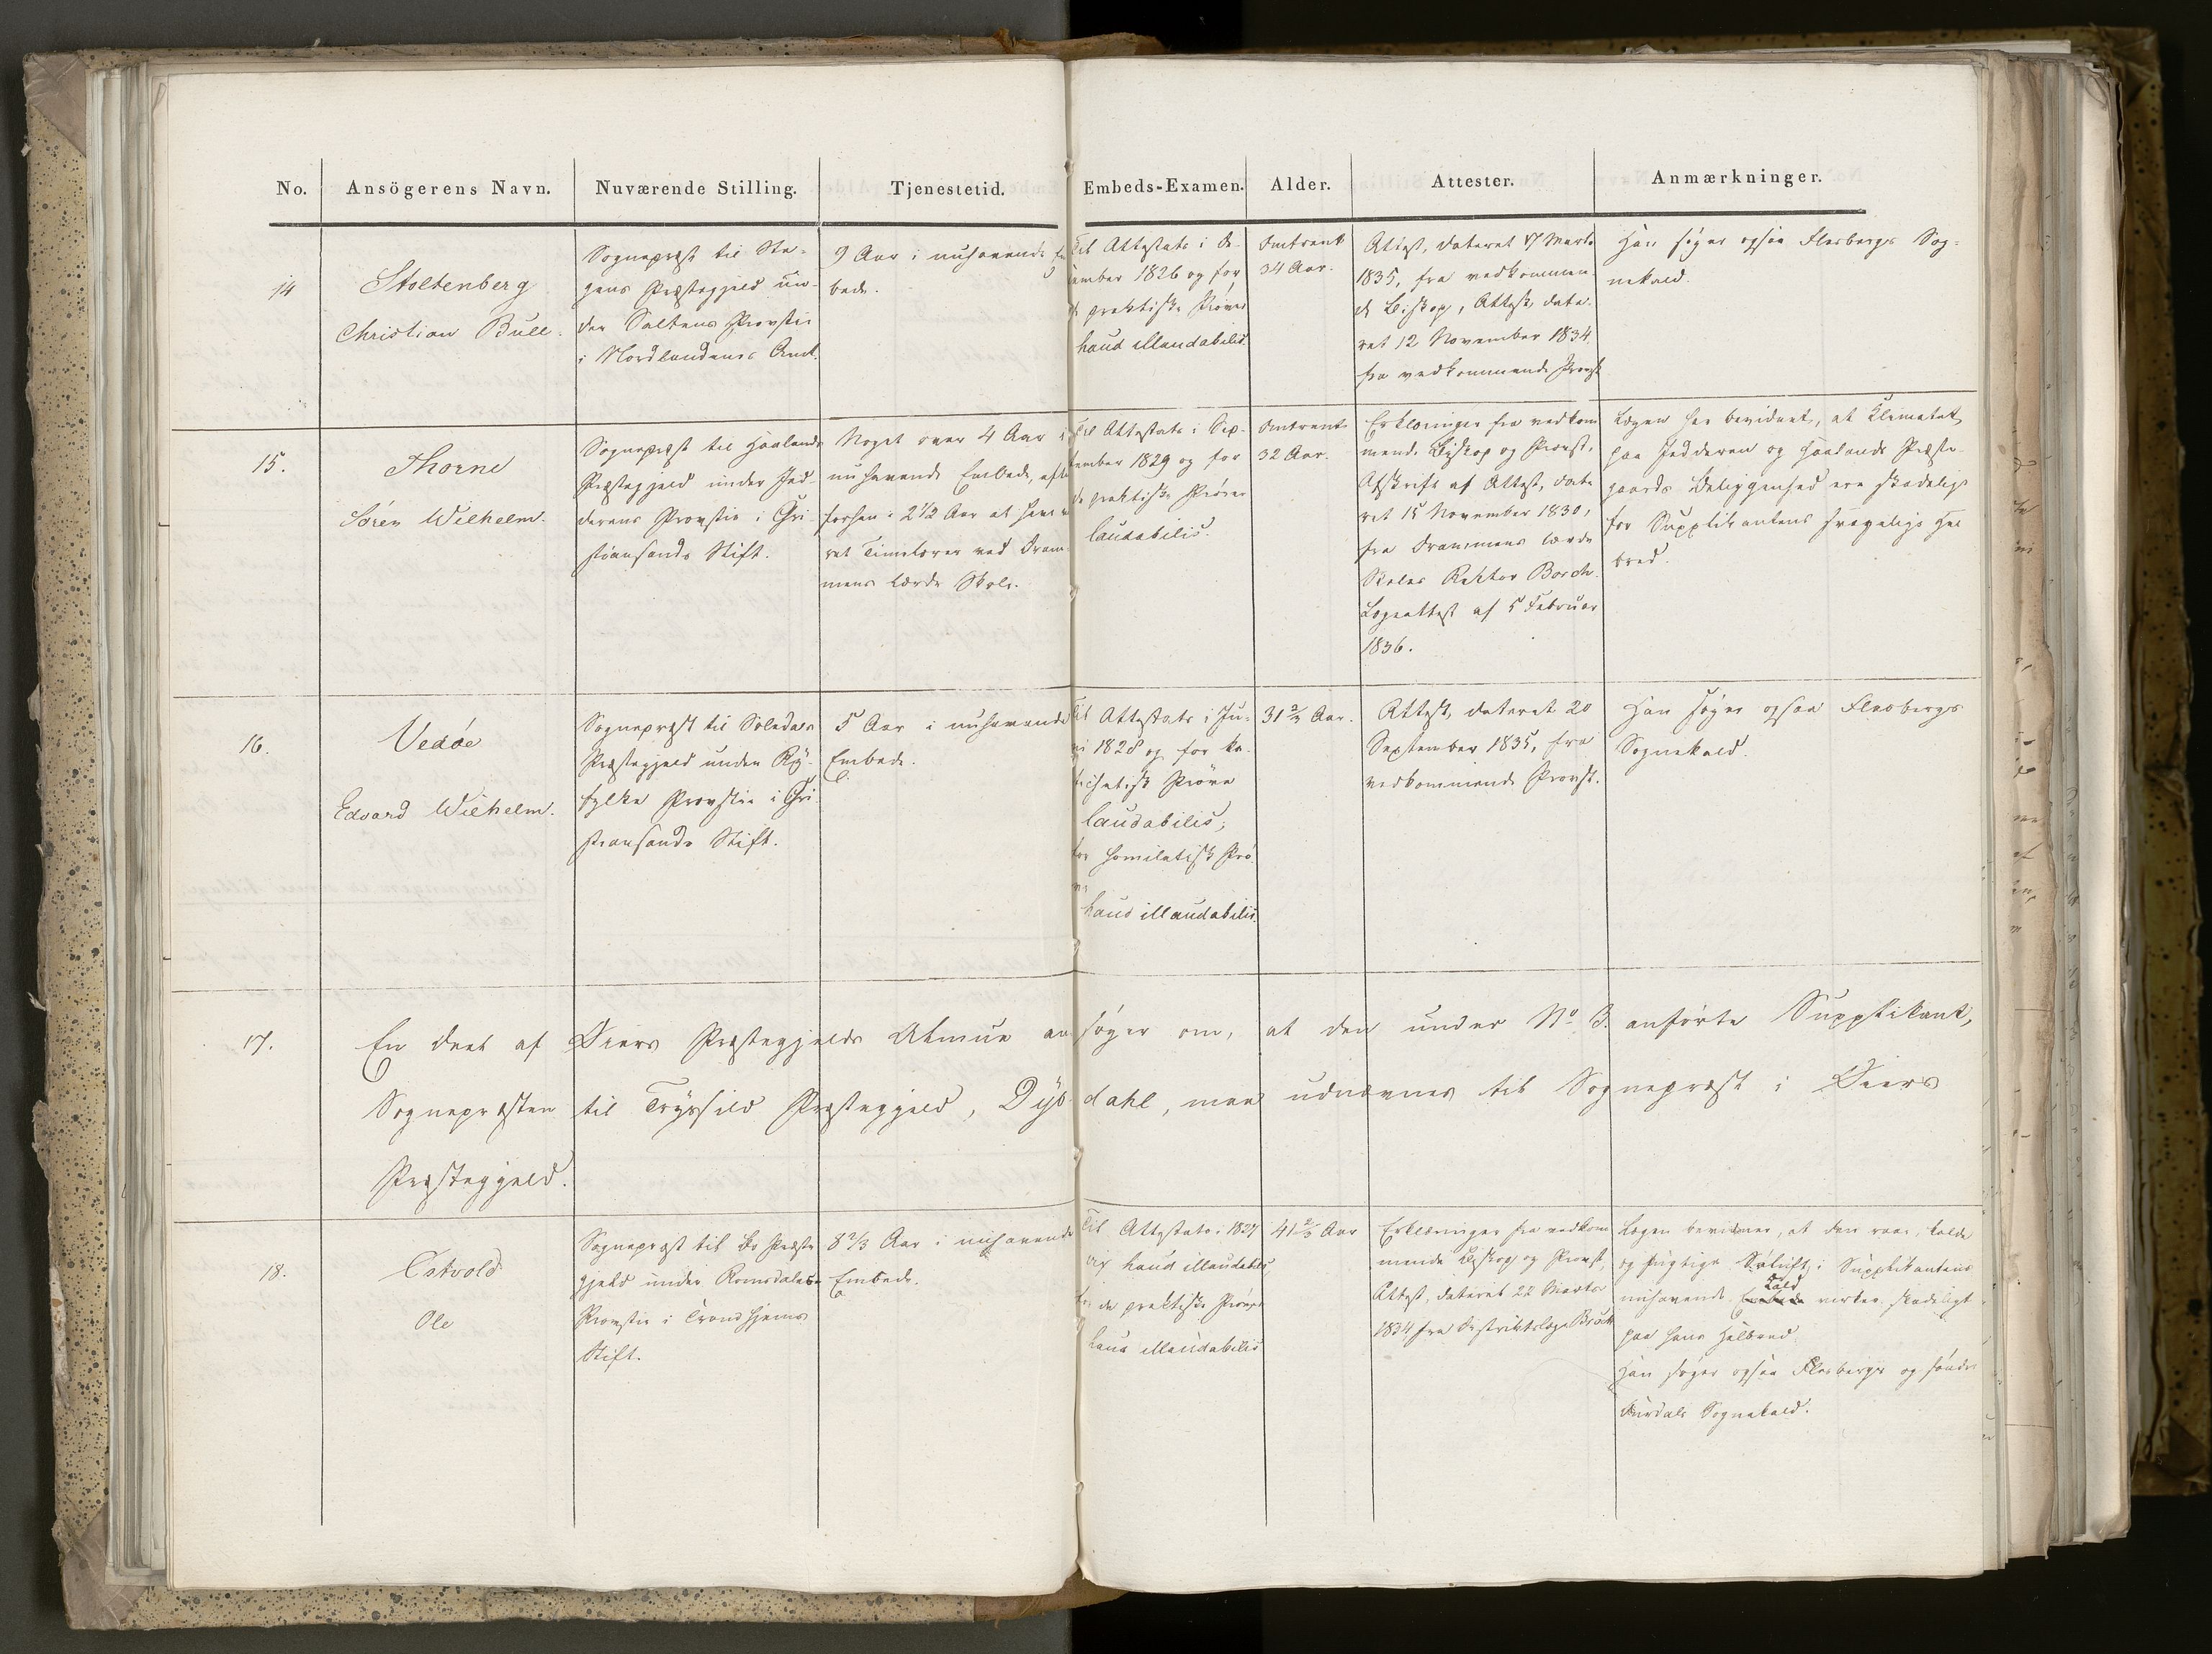 No.
Ansögerens Navn.
Nuværende Stilling.
Tjenestetid.
Embeds-Examen.
Alder.
Attester.
Anmærkninger.
14
Stoltenberg
Christian Bull.
Sognepræst til Ste-
gens Præstegjeld un-
der Saltens Provstie
i Nordlandenes Amt.
9 Aar i nuhavende Em
bede.
Til Attestats i De-
cember 1826 og for
de praktiske Prøver
haud illaudabilis.
Omtrent
34 Aar.
Attest, dateret 17 Marts
1835, fra vedkommen-
de Biskop, Attest, date-
ret 12 November 1834,
fra vedkommende Provst
Han søger ogsaa Flesbergs Sog-
nekald.
15.
Thorne
Sören Wilhelm.
Sognepræst til Haalands
Præstegjeld under Jed-
derens Provstie i Chri-
stiansands Stift.
Noget over 4 Aar i
nuhavende Embede, efter
forhen i 2 1/2 Aar at have væ
ret Timelærer ved Dram-
mens lærde Skole.
Til Attestats i Sep-
tember 1829 og for
de praktiske Prøver
laudabilis.
Omtrent
32 Aar.
Erklæringer fra vedkom
mende Biskop og Provst,
Afskrift af Attest, date
ret 15 November 1830,
fra Drammens lærde
Skoles Rektor Borch.
Lægeattest af 5 Februar
1836.
Lægen har bevidnet, at Klimatet
paa Jedderen og Haalands Præste-
gaards Beliggenhed ere skadelige
for Supplikantens svagelige Hel
bred.
16.
Vedöe
Edvard Wilhelm.
Sognepræst til Soledals
Præstegjeld under Ry-
fylke Provstie i Chri-
stiansands Stift.
5 Aar i nuhavende
Embede.
Til Attestats i Ju-
ni 1828 og for ka-
techetisk Prøve
laudabilis,
for homiletisk Prø
ve
haud illaudabilis.
31 2/3 Aar.
Attest, dateret 20
September 1835, fra
vedkommende Provst.
Han søger ogsaa Flesbergs
Sognekald.
17.
En Deel af Øiers Præstegjelds Almue an søger om, at den under No 3. anførte Supplikant,
Sognepræsten til Tryssild Præstegjeld, Dybdahl, maa udnævnes til Sognepræst i Øiers
Præstegjeld.
18.
Østvold
Ole
Sognepræst til Bö Præste
gjeld under Romsdalens
Provstie i Trondhjems
Stift.
8 2/3 Aar i nuhavende
Embede.
Til Attestats i 1827
haud illaudabilis
for de praktiske Prøver
haud illaudabilis
41 2/3 Aar
Erklæringer fra vedkom
mende Biskop og Provst,
Attest, dateret 22 Marts
1834 fra Distriktslæge
Lægen bevidner, at den raae, kolde
og fugtige Søluft i Supplikantens
nuhavende Kald virker skadeligt
paa hans Helbred.
Han søger ogsaa Flesbergs og søndre
Aurdals Sognekald.